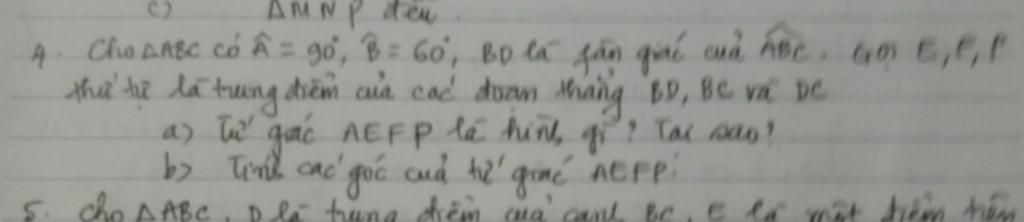 c) ΔMNP đều
4. Cho ΔABC có Â = 90°, B̂ = 60°, BD là fân giác cuả ABC. Gọi E, F, P
thứ tự là trung điểm của các đoạn thẳng BD, BC và DC
a) Tứ giác AEFP là hình gì? Tại sao?
b) Tính các góc cuả tứ giác AEFP.
5. Cho ΔABC, D là trung điểm cuả cạnh BC, E là một điểm trên